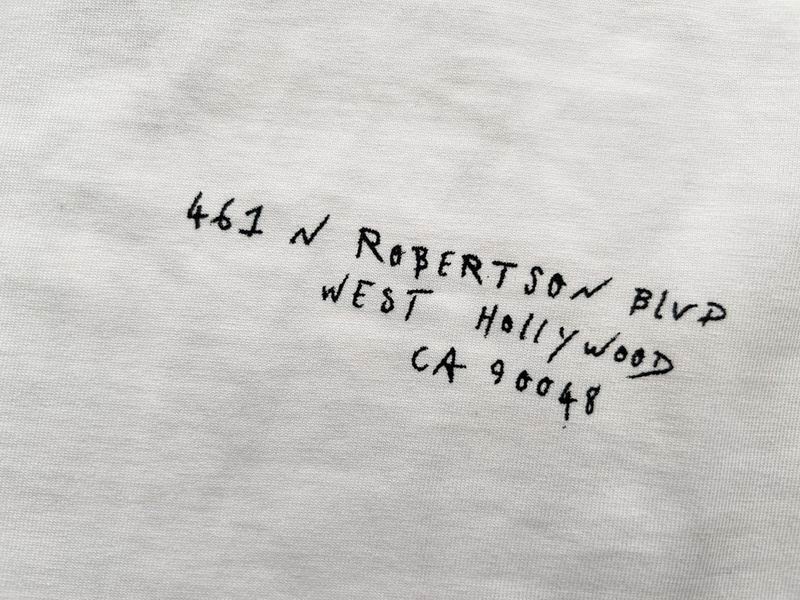 461 N ROBERTSON BLVD
WEST HOllYWOOD
CA 90048